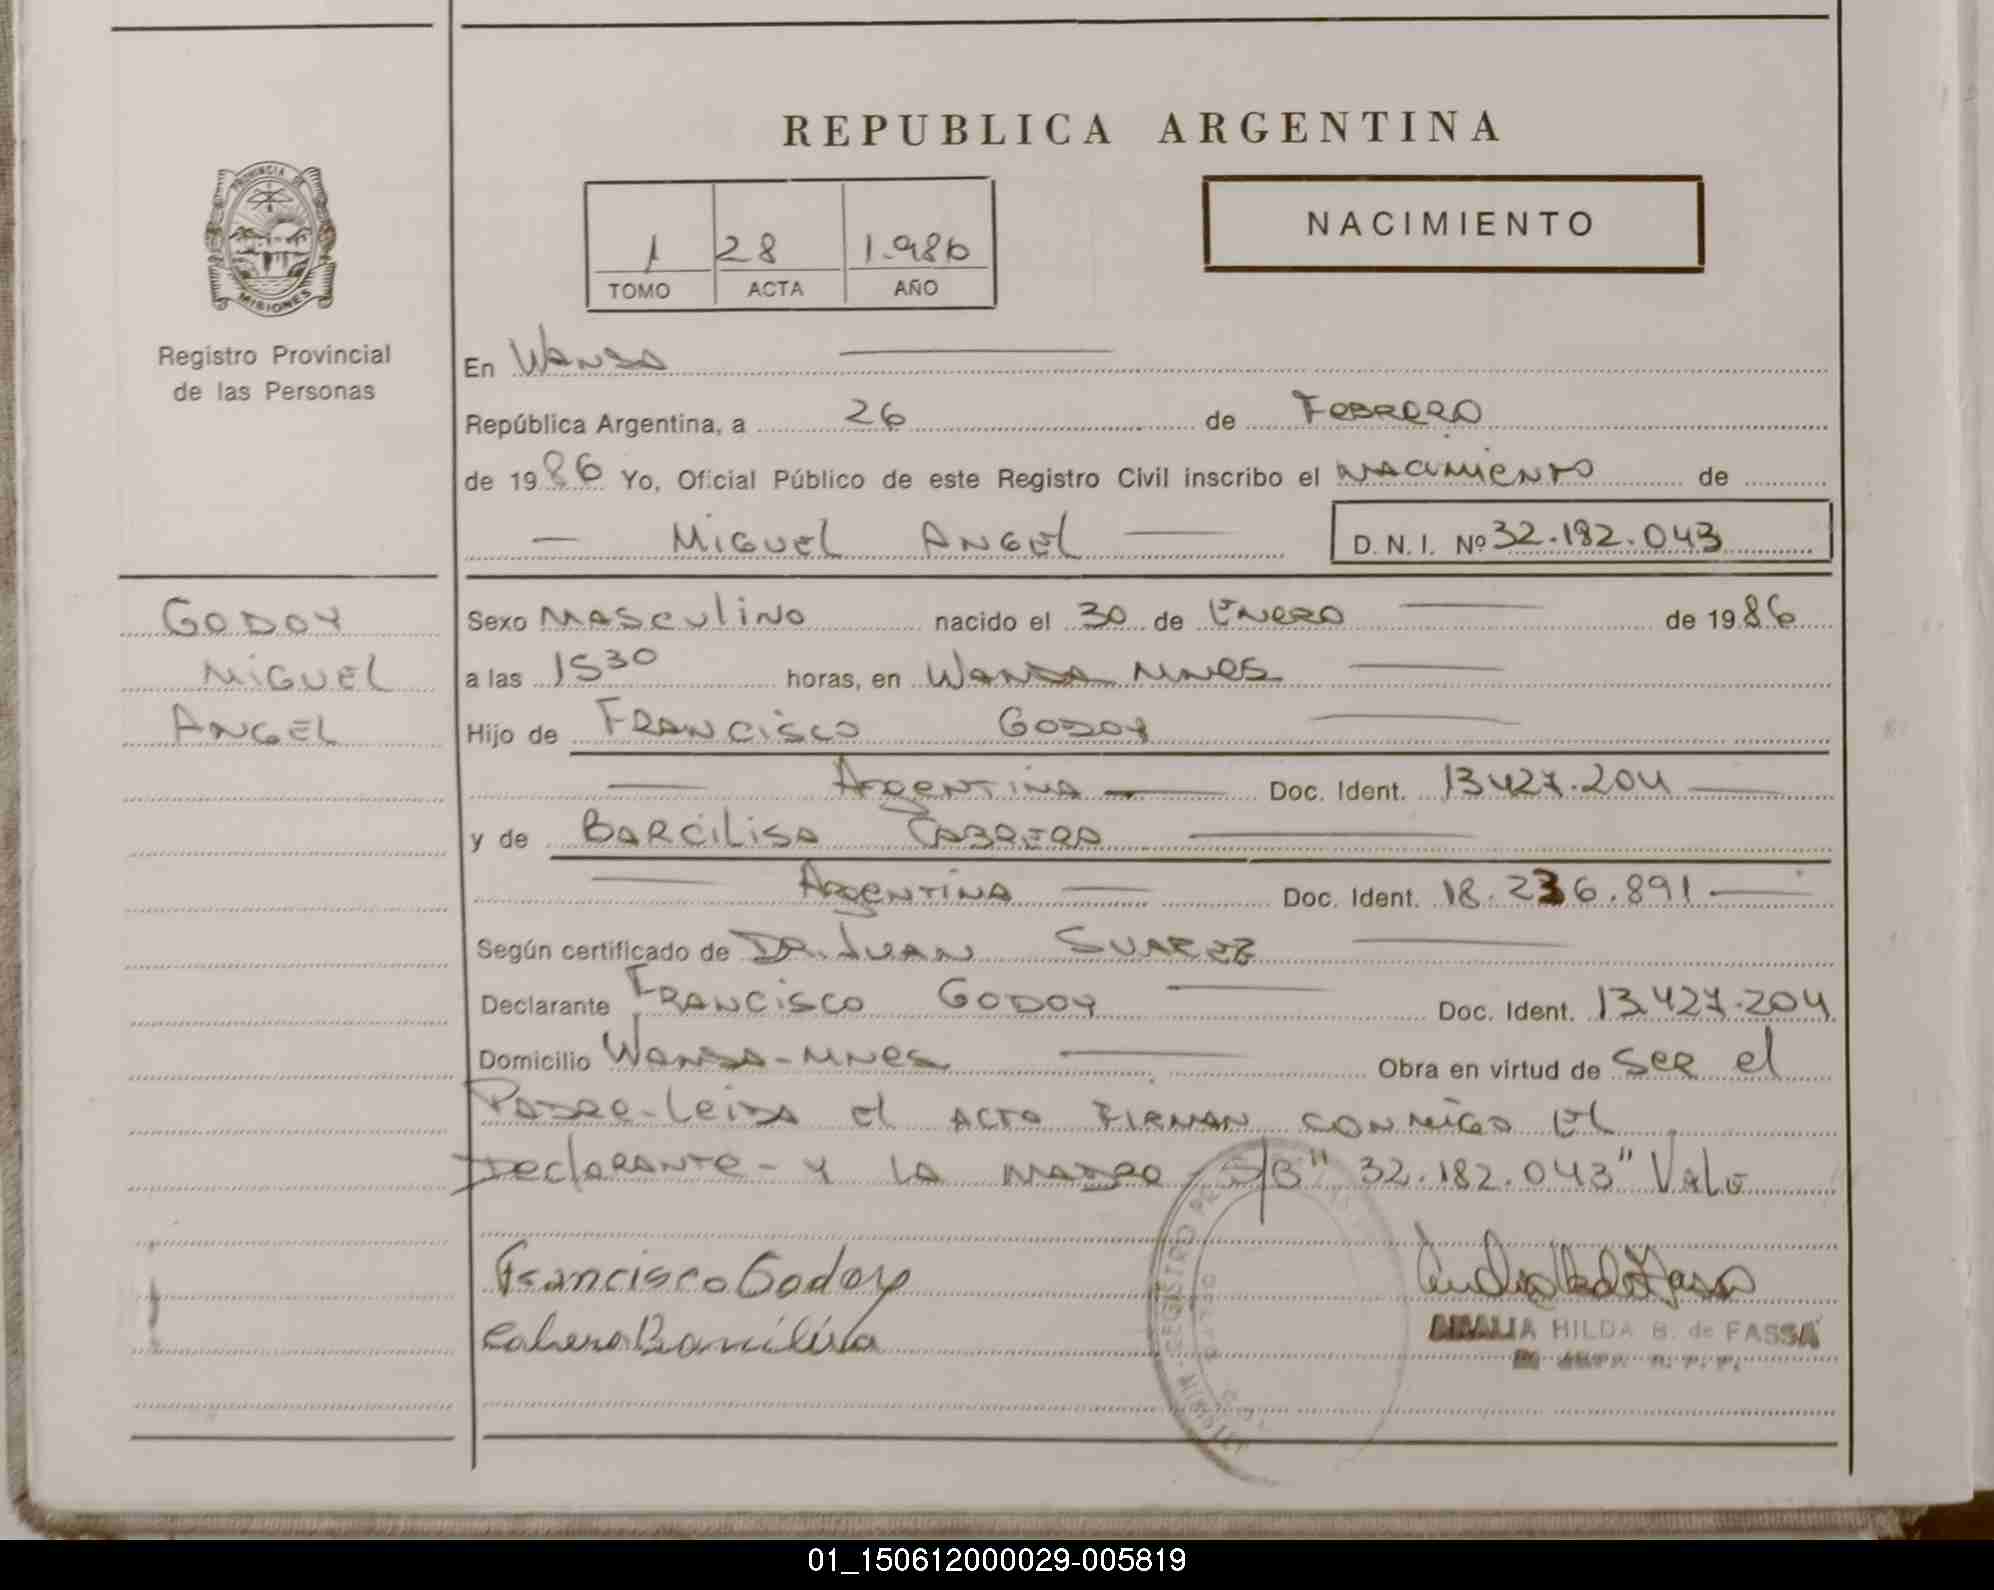 REPUBLICA ARGENTINA
NACIMIENTO
1 28 1.986
TOMO ACTA AÑO
PROVINCIA DE
MISIONES
Registro Provincial
de las Personas
En Wanda
República Argentina, a 26 de Febrero
de 1986 Yo, Oficial Público de este Registro Civil inscribo el nacimiento de
— Miguel Angel — D. N. I. Nº 32.182.043
GODOY
MIGUEL
ANGEL
Sexo Masculino nacido el 30 de Enero — de 1986
a las 1530 horas, en Wanda Mnes —
Hijo de Francisco Godoy —
— Argentina — Doc. Ident. 13.427.204 —
y de Barcilisa Cabrera —
— Argentina — Doc. Ident. 18.236.891 —
Según certificado de Dr. Juan Suarez —
Declarante Francisco Godoy — Doc. Ident. 13.427.204
Domicilio Wanda-Mnes — Obra en virtud de ser el
Padre-Leida el acto firman conmigo el
Declarante-y la madre S/B "32.182.043" Vale
Francisco Godoy
Cabrera Barcilisa
AMALIA HILDA B. de FASSA
01_150612000029-005819